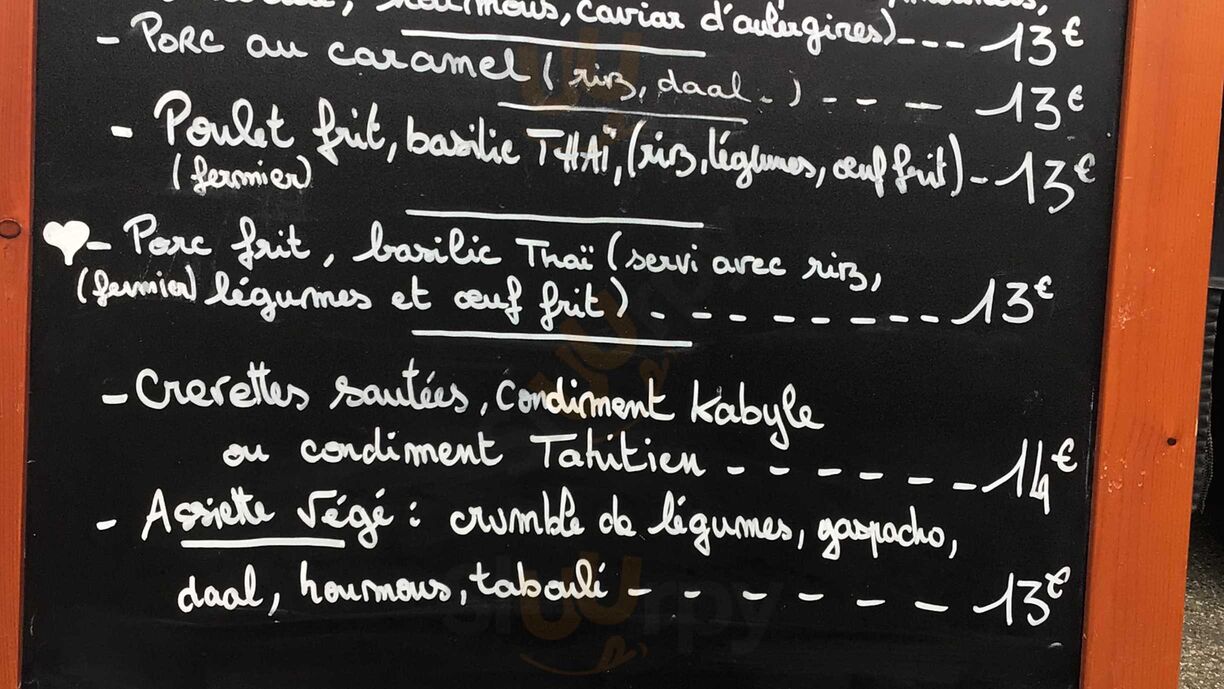 houmous, caviar d'aubergines) --- 13€
- Porc au caramel (riz, daal..) - - - - 13€
- Poulet frit, basilic THAÏ, (riz, légumes, œuf frit) - 13€
(fermier)
- Porc frit, basilic Thaï (servi avec riz,
(fermier) légumes et œuf frit) - - - - - - - - - 13€
- Crevettes sautées, condiment Kabyle
ou condiment Tahitien - - - - - - 14€
- Assiette Végé : crumble de légumes, gaspacho,
daal, houmous, taboulé - - - - - - - 13€
sluurpy